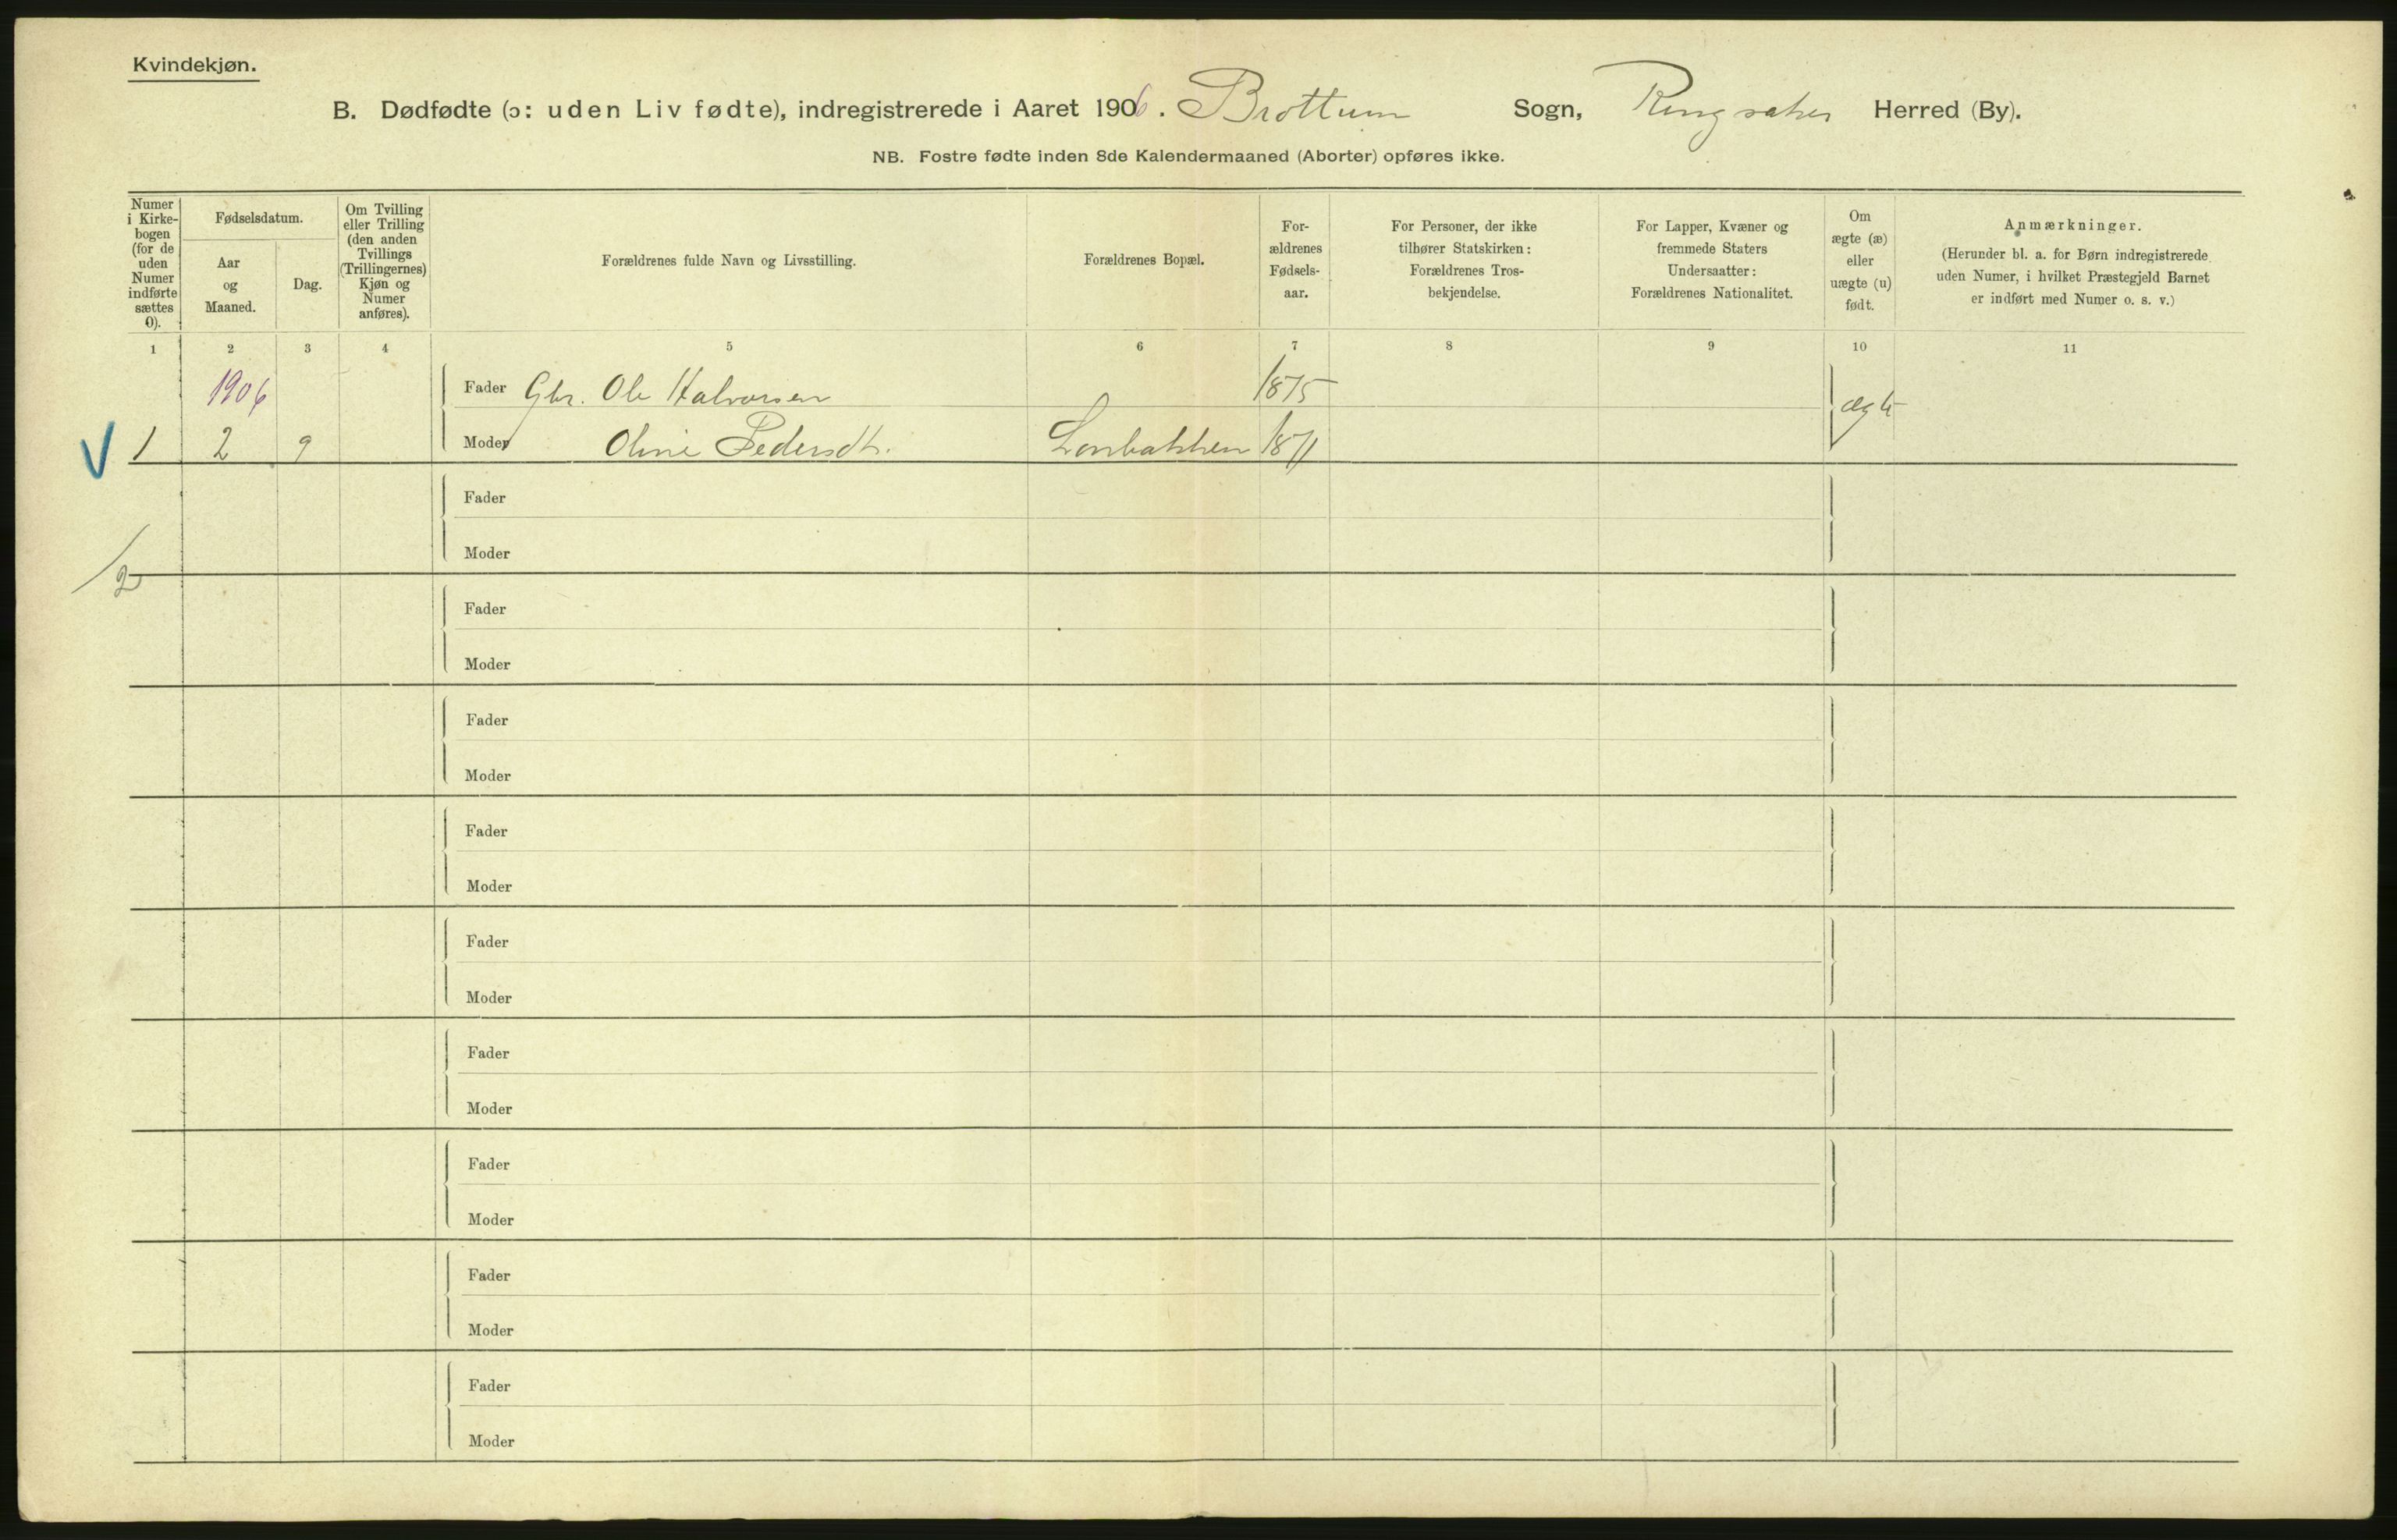 Kvindekjøn.
B. Dødfødte (ɔ: uden Liv fødte), indregistrerede i Aaret 1906. Brøttum Sogn, Ringsaker Herred (By).
NB. Fostre fødte inden 8de Kalendermaaned (Aborter) opføres ikke.
Numer i Kirkebogen (for de uden Numer indførte sættes 0).
Fødselsdatum.
Aar og Maaned.
Dag.
Om Tvilling eller Trilling (den anden Tvillings (Trillingernes) Kjøn og Numer anføres).
Forældrenes fulde Navn og Livsstilling.
Forældrenes Bopæl.
For-
ældrenes
Fødsels-
aar.
For Personer, der ikke
tilhører Statskirken:
Forældrenes Tros-
bekjendelse.
For Lapper, Kvæner og
fremmede Staters
Undersaatter:
Forældrenes Nationalitet.
Om
ægte (æ)
eller
uægte (u)
født.
Anmærkninger.
(Herunder bl. a. for Børn indregistrerede
uden Numer, i hvilket Præstegjeld Barnet
er indført med Numer o. s. v.)
1 2 3 4 5 6 7 8 9 10 11
1906 Fader Gbr. Ole Halvorsen 1875 ægte
V 1 2 9 Moder Oline Pedersdt. 1871
Fader
Moder
2
Fader
Moder
Fader
Moder
Fader
Moder
Fader
Moder
Fader
Moder
Fader
Moder
Fader
Moder
Fader
Moder